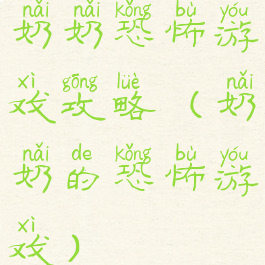 nǎi nǎi kǒng bù yóu
奶奶恐怖游
xì gōng lüè nǎi
戏攻略（奶
nǎi de kǒng bù yóu
奶的恐怖游
xì
戏）